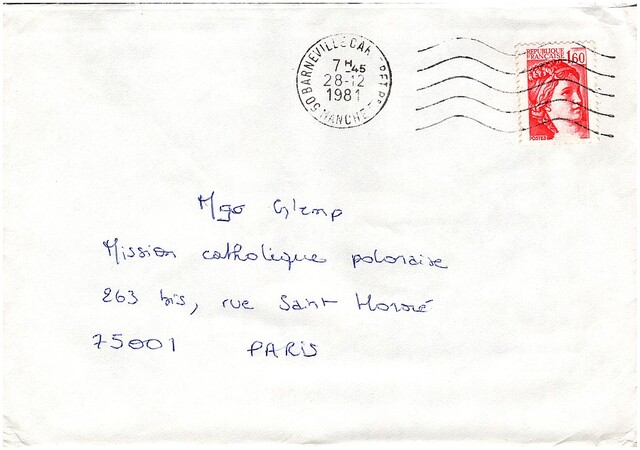 50 BARNEVILLE CAR
MANCHE
7 H 45
28-12
1981
REPUBLIQUE
FRANÇAISE
1,60
POSTES
Mgr Glemp
Mission catholique polonaise
263 bis, rue Saint Honoré
75001 PARIS